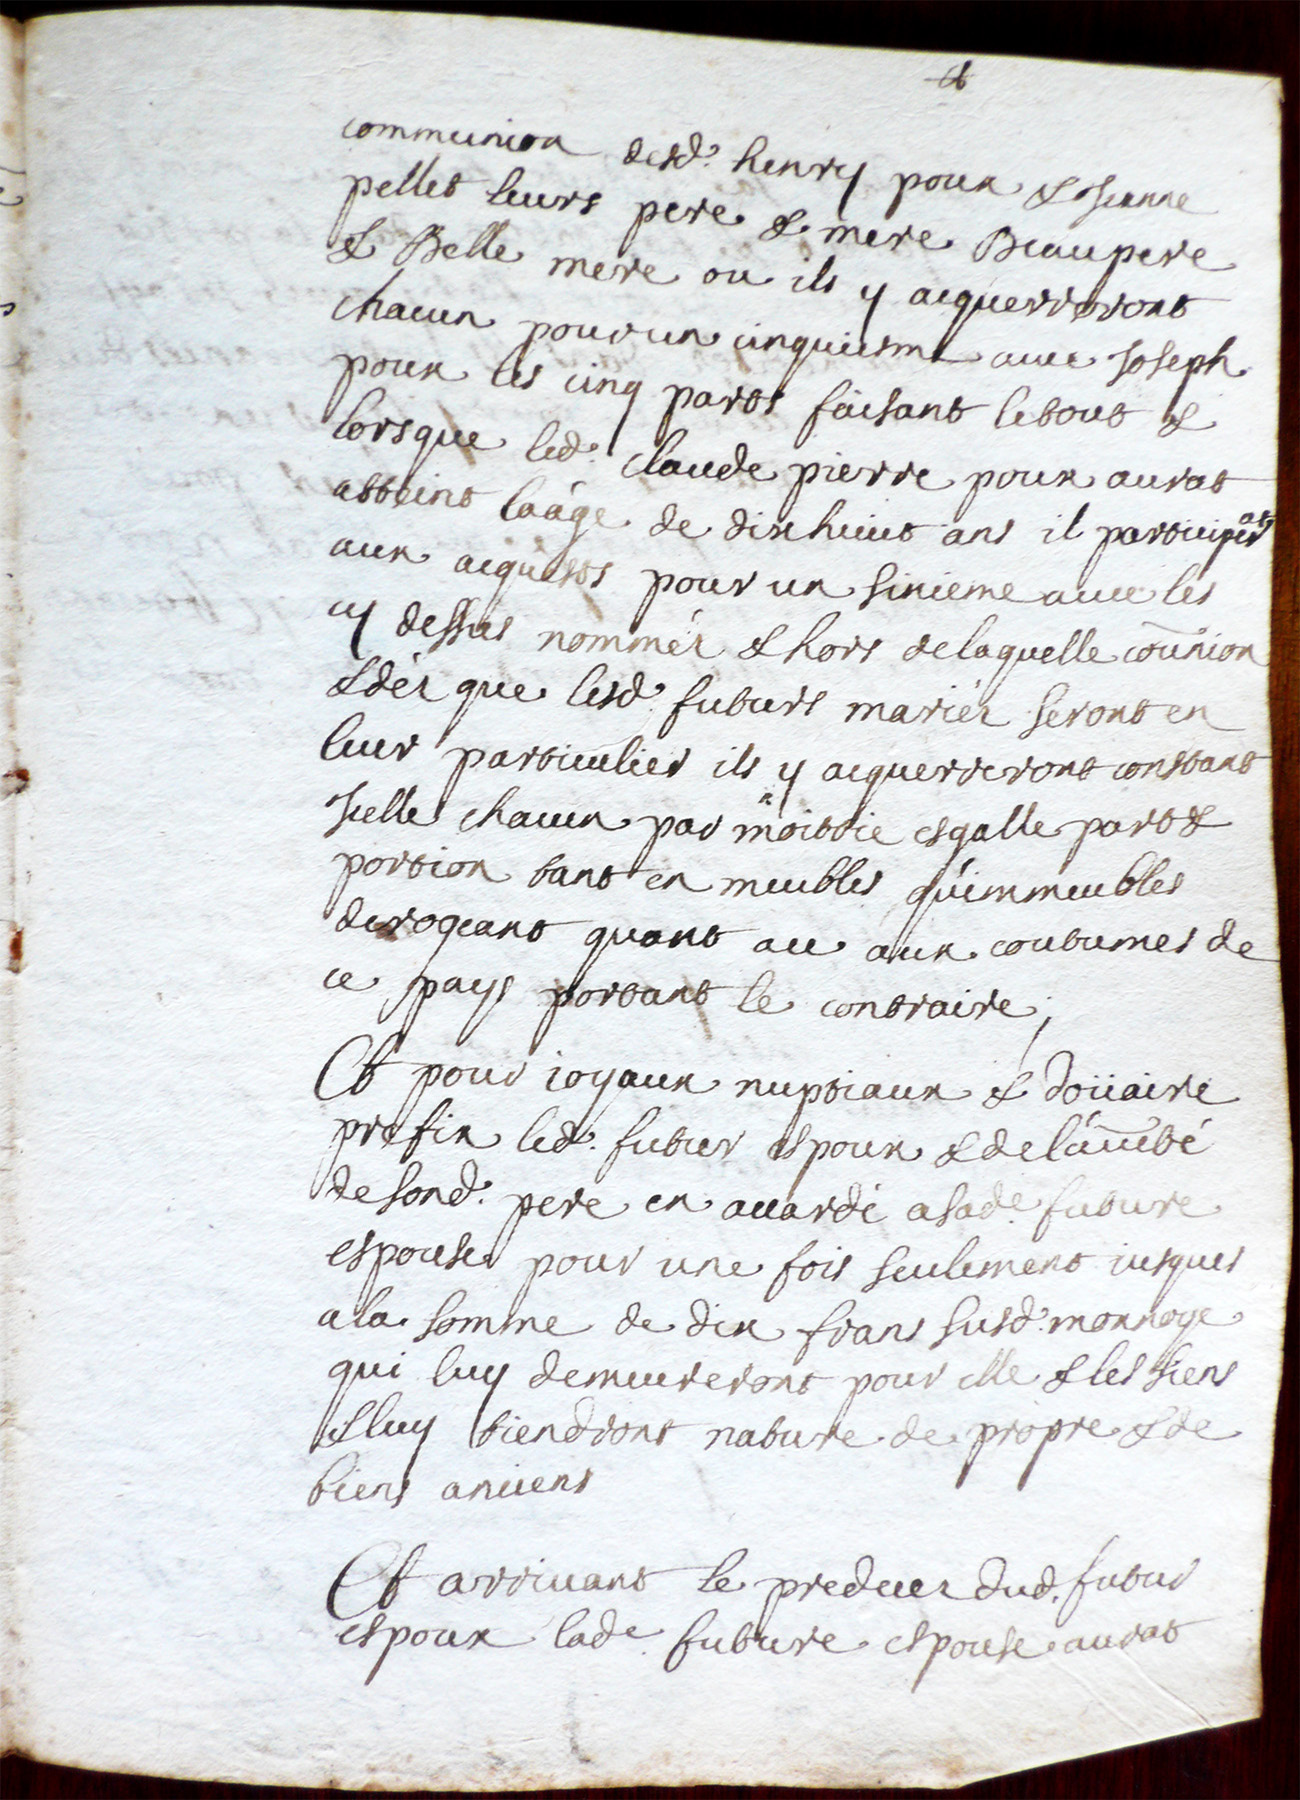 communion desd. henry poux & Jeanne
pellet leurs pere & mere Beaupere
& Belle mere ou ils y acquerreront
chacun pour un cinquiesme avec Joseph
poux les cinq parts faisant letout &
lorsque led. claude pierre poux aurat
atteint laâge de dix huict ans il participerat
aux acquests pour un sixieme avec les
cy dessus nommér & hors delaquelle coũnion
& dér que lesd. futurs mariér seront en
leur particulier ils y acquerreront constant
Jcelle chacun par moittie esgalle part &
portion tant en meubles qu'immeubles
derogeant quant a ce aux coutumes de
ce pays portant le contraire ;
Et pour ioyaux nuptiaux & doüaire
prefix led. futur espoux & de l'auth̃é
desond. pere en a uardé a sade. future
espouse pour une fois seulement iusques
a la somme de dix frans susd. monnoye
qui luy demeureront pour elle & les siens
& luy tiendront nature de propre & de
biens anciens
Et arrivant le predeces dud. futur
espoux lade. future espouse aurat